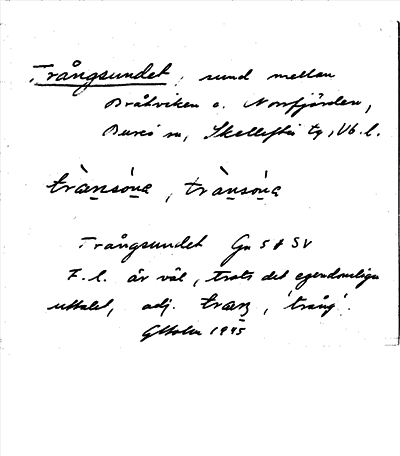 Trångsundet, sund mellan
Bråtviken o. Norrfjärden,
Bureå sn, Skellefteå tg, Vb. l.
trànsóna, trànsóna
Trångsundet Gn S & SV
F. l. är väl, trots det egendomliga
uttalet, adj. traŋ, 'trång'.
GHolm 1945